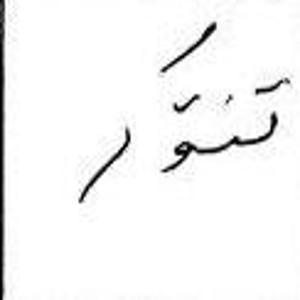 تنوّر